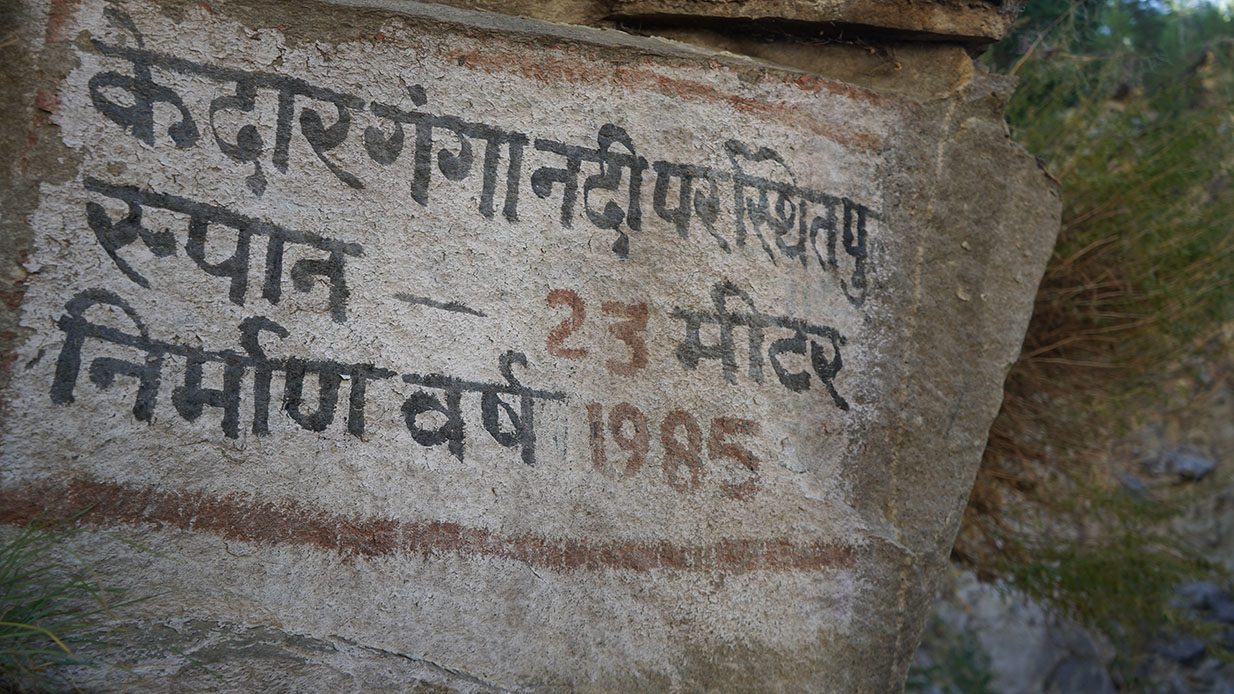 केदार गंगा नदी पर स्थित पु
रुपान — 23 मीटर
निर्माण वर्ष 1985